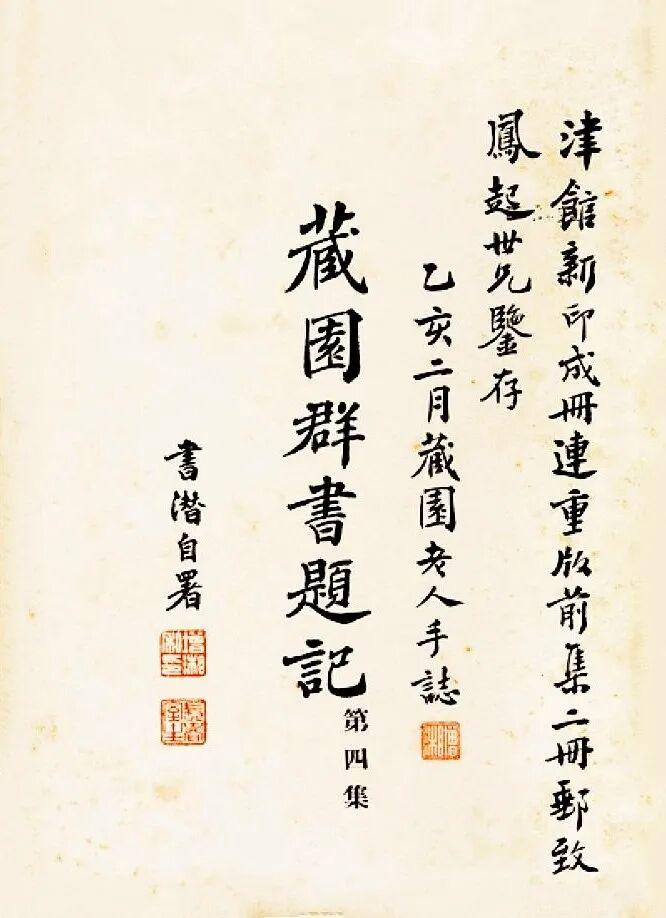 津館新印成冊連重版前集二冊郵致
鳳起世兄鑒存
乙亥二月藏園老人手誌
藏園群書題記
第四集
書潛自署